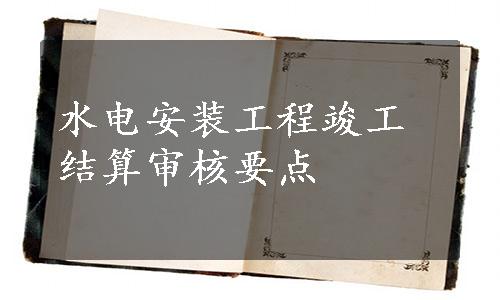 水电安装工程竣工
结算审核要点